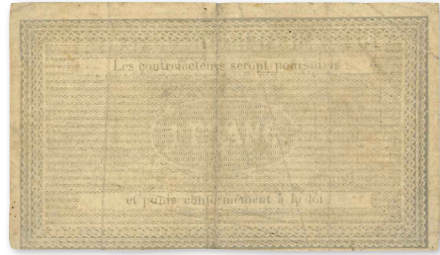 Les contrefacteurs seront poursuivis
et punis conformément à la loi